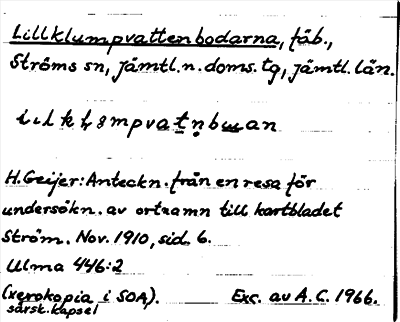 Lillklumpvattenbodarna, fäb.,
Ströms sn, jämtl. n. doms. tg, jämtl. län.
H. Geijer: Anteckn. från en resa för
undersökn. av ortnamn till kartbladet
Ström. Nov. 1910, sid. 6.
Ulma 446:2
(xerokopia i SOA). Exc. av A. C. 1966.
särsk. kapsel